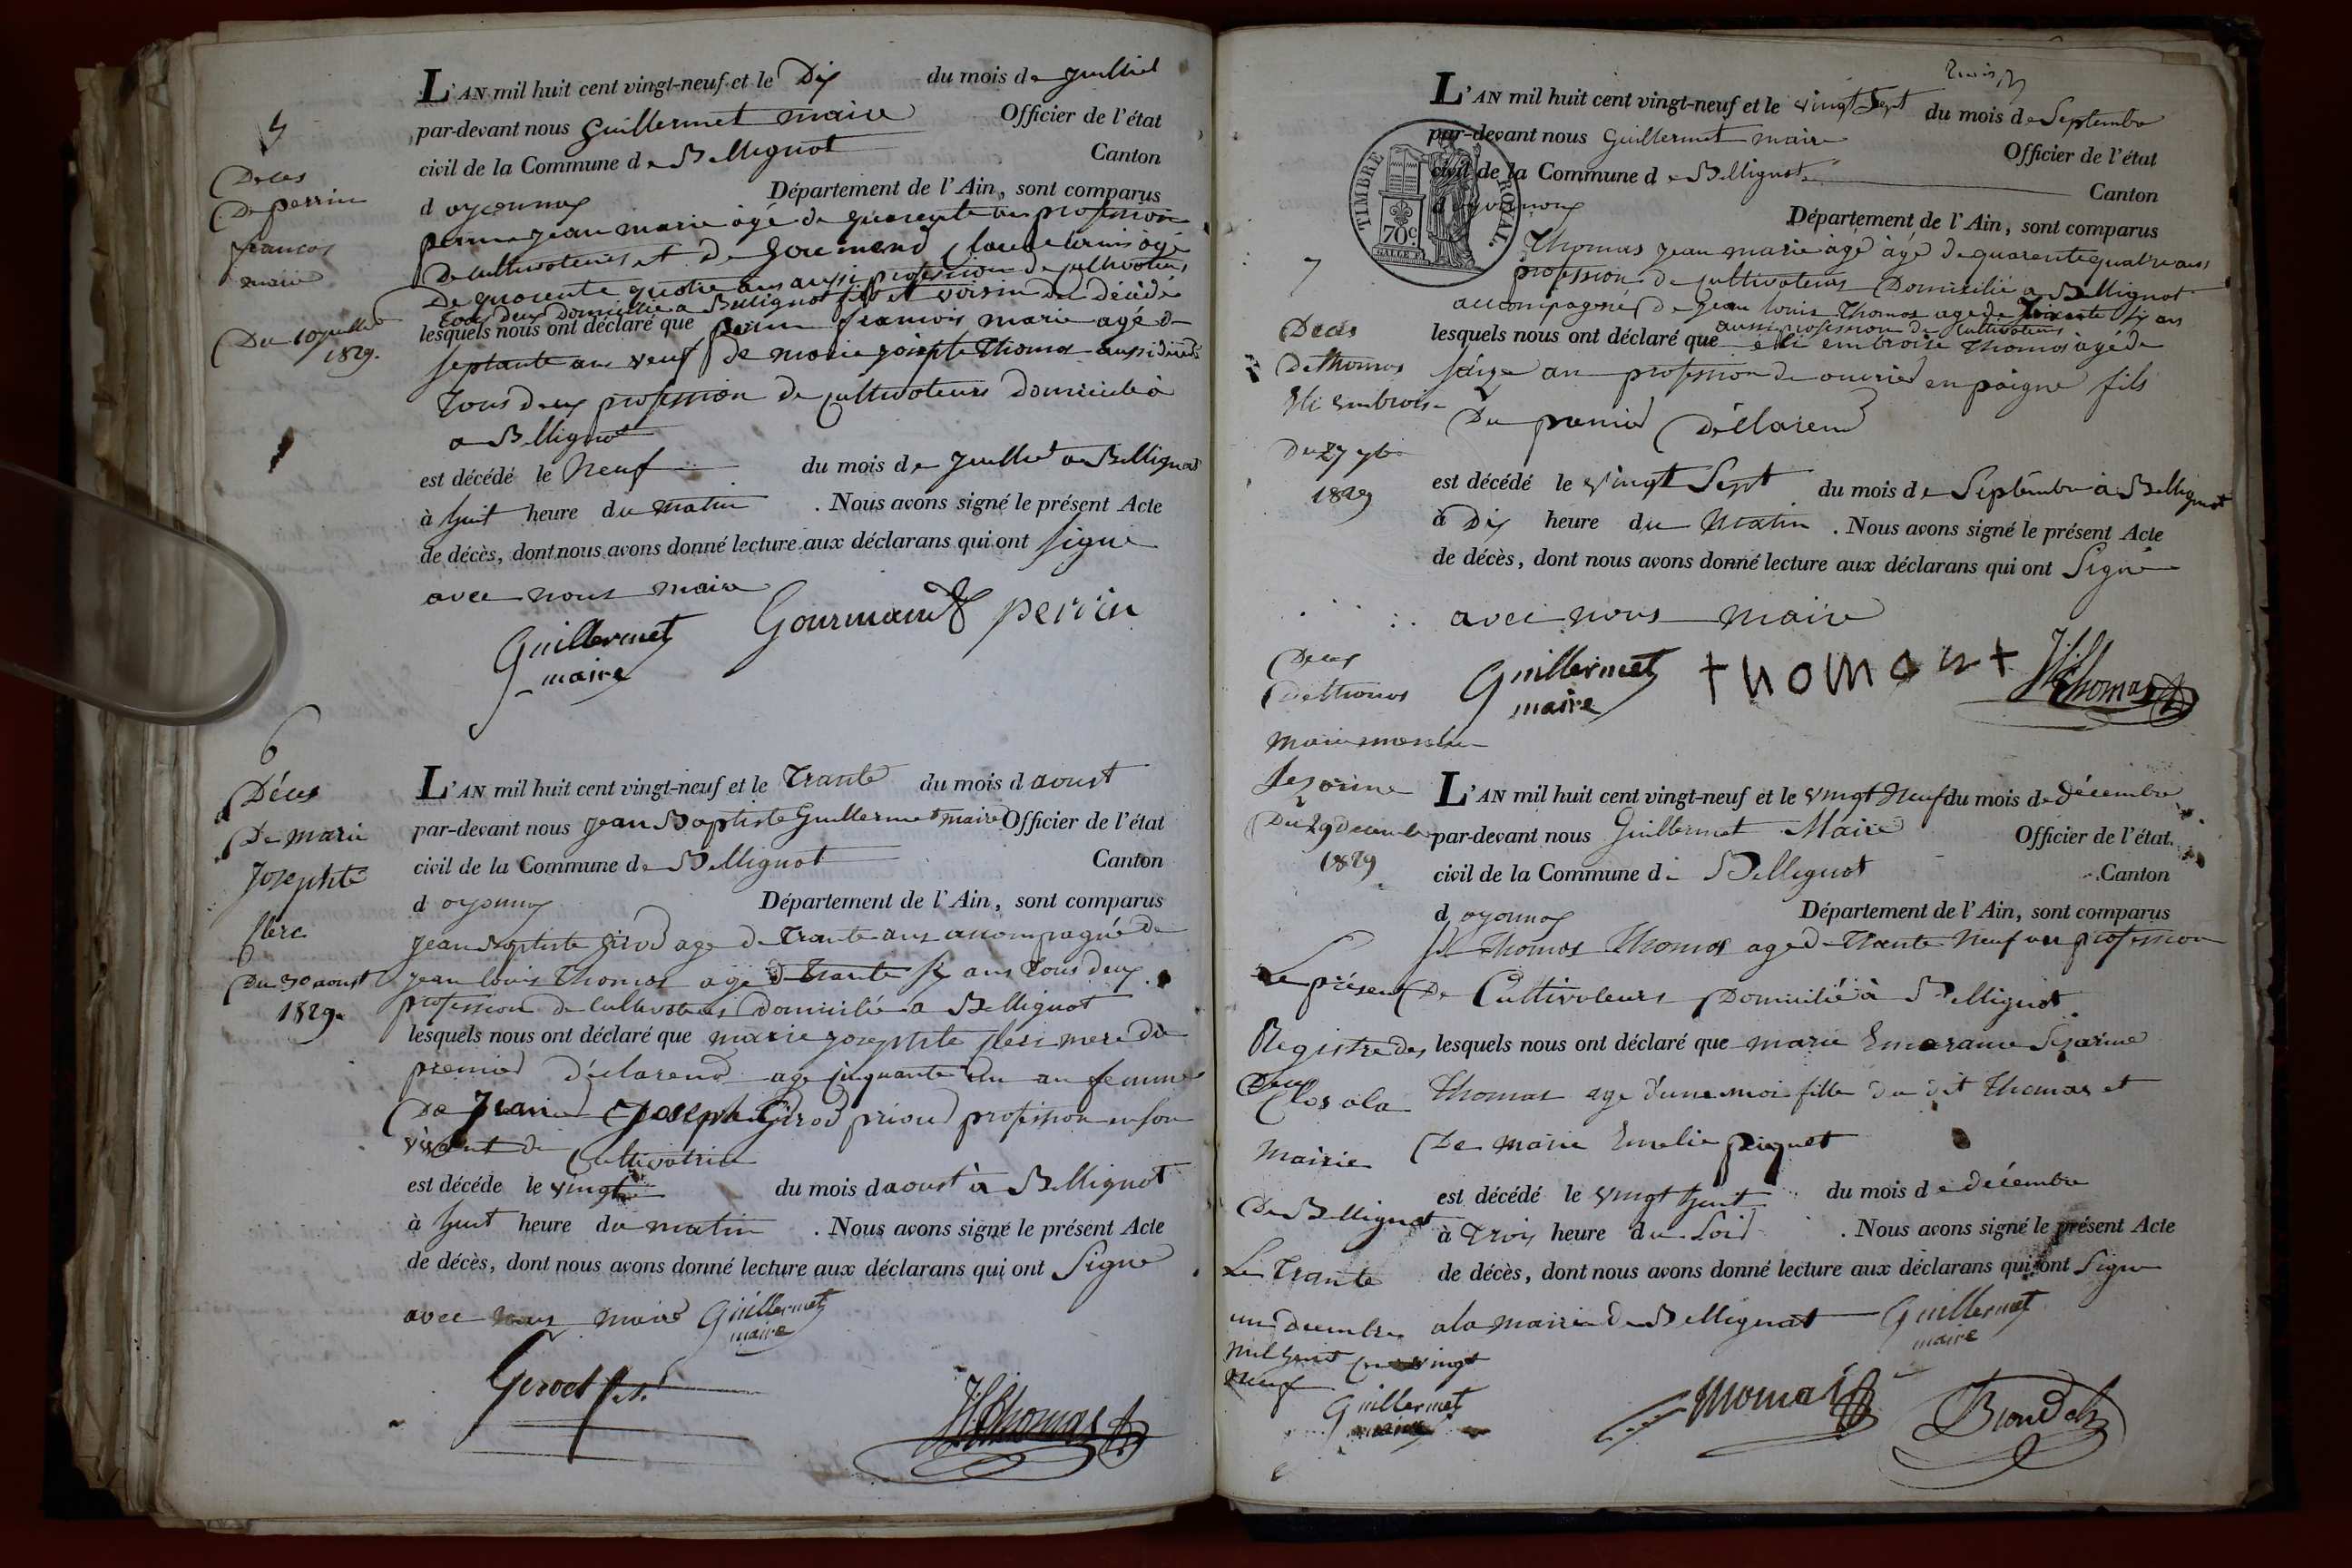 5
Deces
De perrin
francois
marie
Du 10 juillet
1829.
L'AN mil huit cent vingt-neuf et le Dix du mois de juilliet
par-devant nous Guillermet maire Officier de l'état
civil de la Commune de Bellignat Canton
d oyonnax Département de l'Ain, sont comparus
perrin jean marie âgé de quarente ans profession
De cultivateurs et de Gourmand Claude âgé
De quarente quatre ans aussi profession de cultivateurs
tous deux domicilié a Bellignat fils et voisin du décédé
lesquels nous ont déclaré que perrin francois marie agé de
septante ans veuf de marie josephte Thomas aussi
Tous deux profession de cultivateurs domicilié à
a Bellignat
est décédé le Neuf du mois de juilliet a Bellignat
à huit heure du matin . Nous avons signé le présent Acte
de décès, dont nous avons donné lecture aux déclarans qui ont signé
avec nous maire
Guillermet
maire
Gourmand perrin
6
Déces
De marie
Josephte
Clerc
Du 30 aoust
1829.
L'AN mil huit cent vingt-neuf et le Trante du mois d aoust
par-devant nous jean Baptiste Guillermet maire Officier de l'état
civil de la Commune de Bellignat Canton
d oyonnax Département de l'Ain, sont comparus
jean Baptiste Girod age de Trante ans accompagné de
jean louis Thomas age de trante six ans Tous deux
profession de Cultivateurs domicilié a Bellignat
lesquels nous ont déclaré que marie josephte Clerc mere du
premier déclarend age cinquante un an femme
De Jean Joseph Girod profession en son
vivant de Cultivatrice
est décéde le vingt du mois d aoust à Bellignat
à huit heure du matin . Nous avons signé le présent Acte
de décès, dont nous avons donné lecture aux déclarans qui ont Signé
avec nous maire Guillermet
maire
Girod
Thomas
7
Deces
De Thomas
Eli Embroise
Du 27 7bre
1829
L'AN mil huit cent vingt-neuf et le vingt Sept du mois de Septembre
par-devant nous Guillermet maire Officier de l'état
civil de la Commune de Bellignat Canton
d oyonnax Département de l'Ain, sont comparus
TIMBRE ROYAL.
70 c.
Thomas jean marie agé âgé de quarente quatre ans
profession de cultivateurs Domicilié a Bellignat
accompagné De jean louis Thomas age de Trante six ans
aussi profession de Cultivateurs
lesquels nous ont déclaré que eli embroise Thomas âgé de
sâize an profession de ouvrier en paigne fils
Du premier Déclarend
est décédé le vingt Sept du mois de Septembre à Bellignat
à Dix heure du Matin . Nous avons signé le présent Acte
de décès, dont nous avons donné lecture aux déclarans qui ont Signé
avec nous maire
Guillermet
maire
Thomas
Deces
De Thomas
Marie
Sesarine
Du 29 Decembre
1829
L'AN mil huit cent vingt-neuf et le vingt Neuf du mois de décembre
par-devant nous Guillermet Maire Officier de l'état
civil de la Commune de Bellignat Canton
d oyonnax Département de l'Ain, sont comparus
Thomas Thomas age de Trante Neuf ans profession
De Cultivateurs Domicilié à Bellignat
lesquels nous ont déclaré que marie Emerance Sesarine
Thomas age d'une moi fille du dit Thomas et
De marie Emelie piquet
est décédé le vingt huit du mois de décembre
à Trois heure du Soir . Nous avons signé le présent Acte
de décès, dont nous avons donné lecture aux déclarans qui ont Signé
a la mairie de Bellignat Guillermet
maire
Thomas
Le présent
Registre des
Deces
Clos a la
Mairie
De Bellignat
Le Trante
un decembre
mil huit cent vingt
neuf
Guillermet
maire